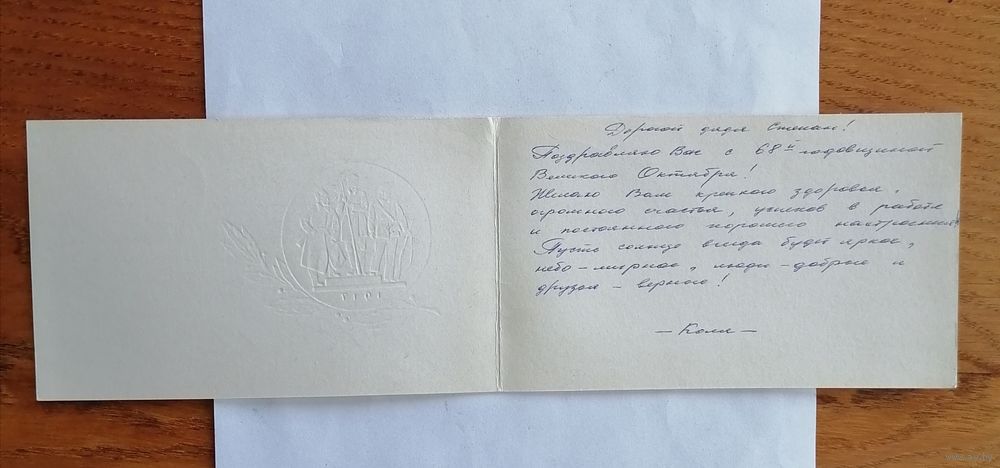 Дорогой дядя Степан!
Поздравляю Вас с 68й годовщиной
Великого Октября!
Желаю Вам крепкого здоровья,
огромного счастья, успехов в работе
и постоянного хорошего настроения!
Пусть солнце всегда будет яркое,
небо - мирное, люди - добрые и
друзья - верные!
- Коля -